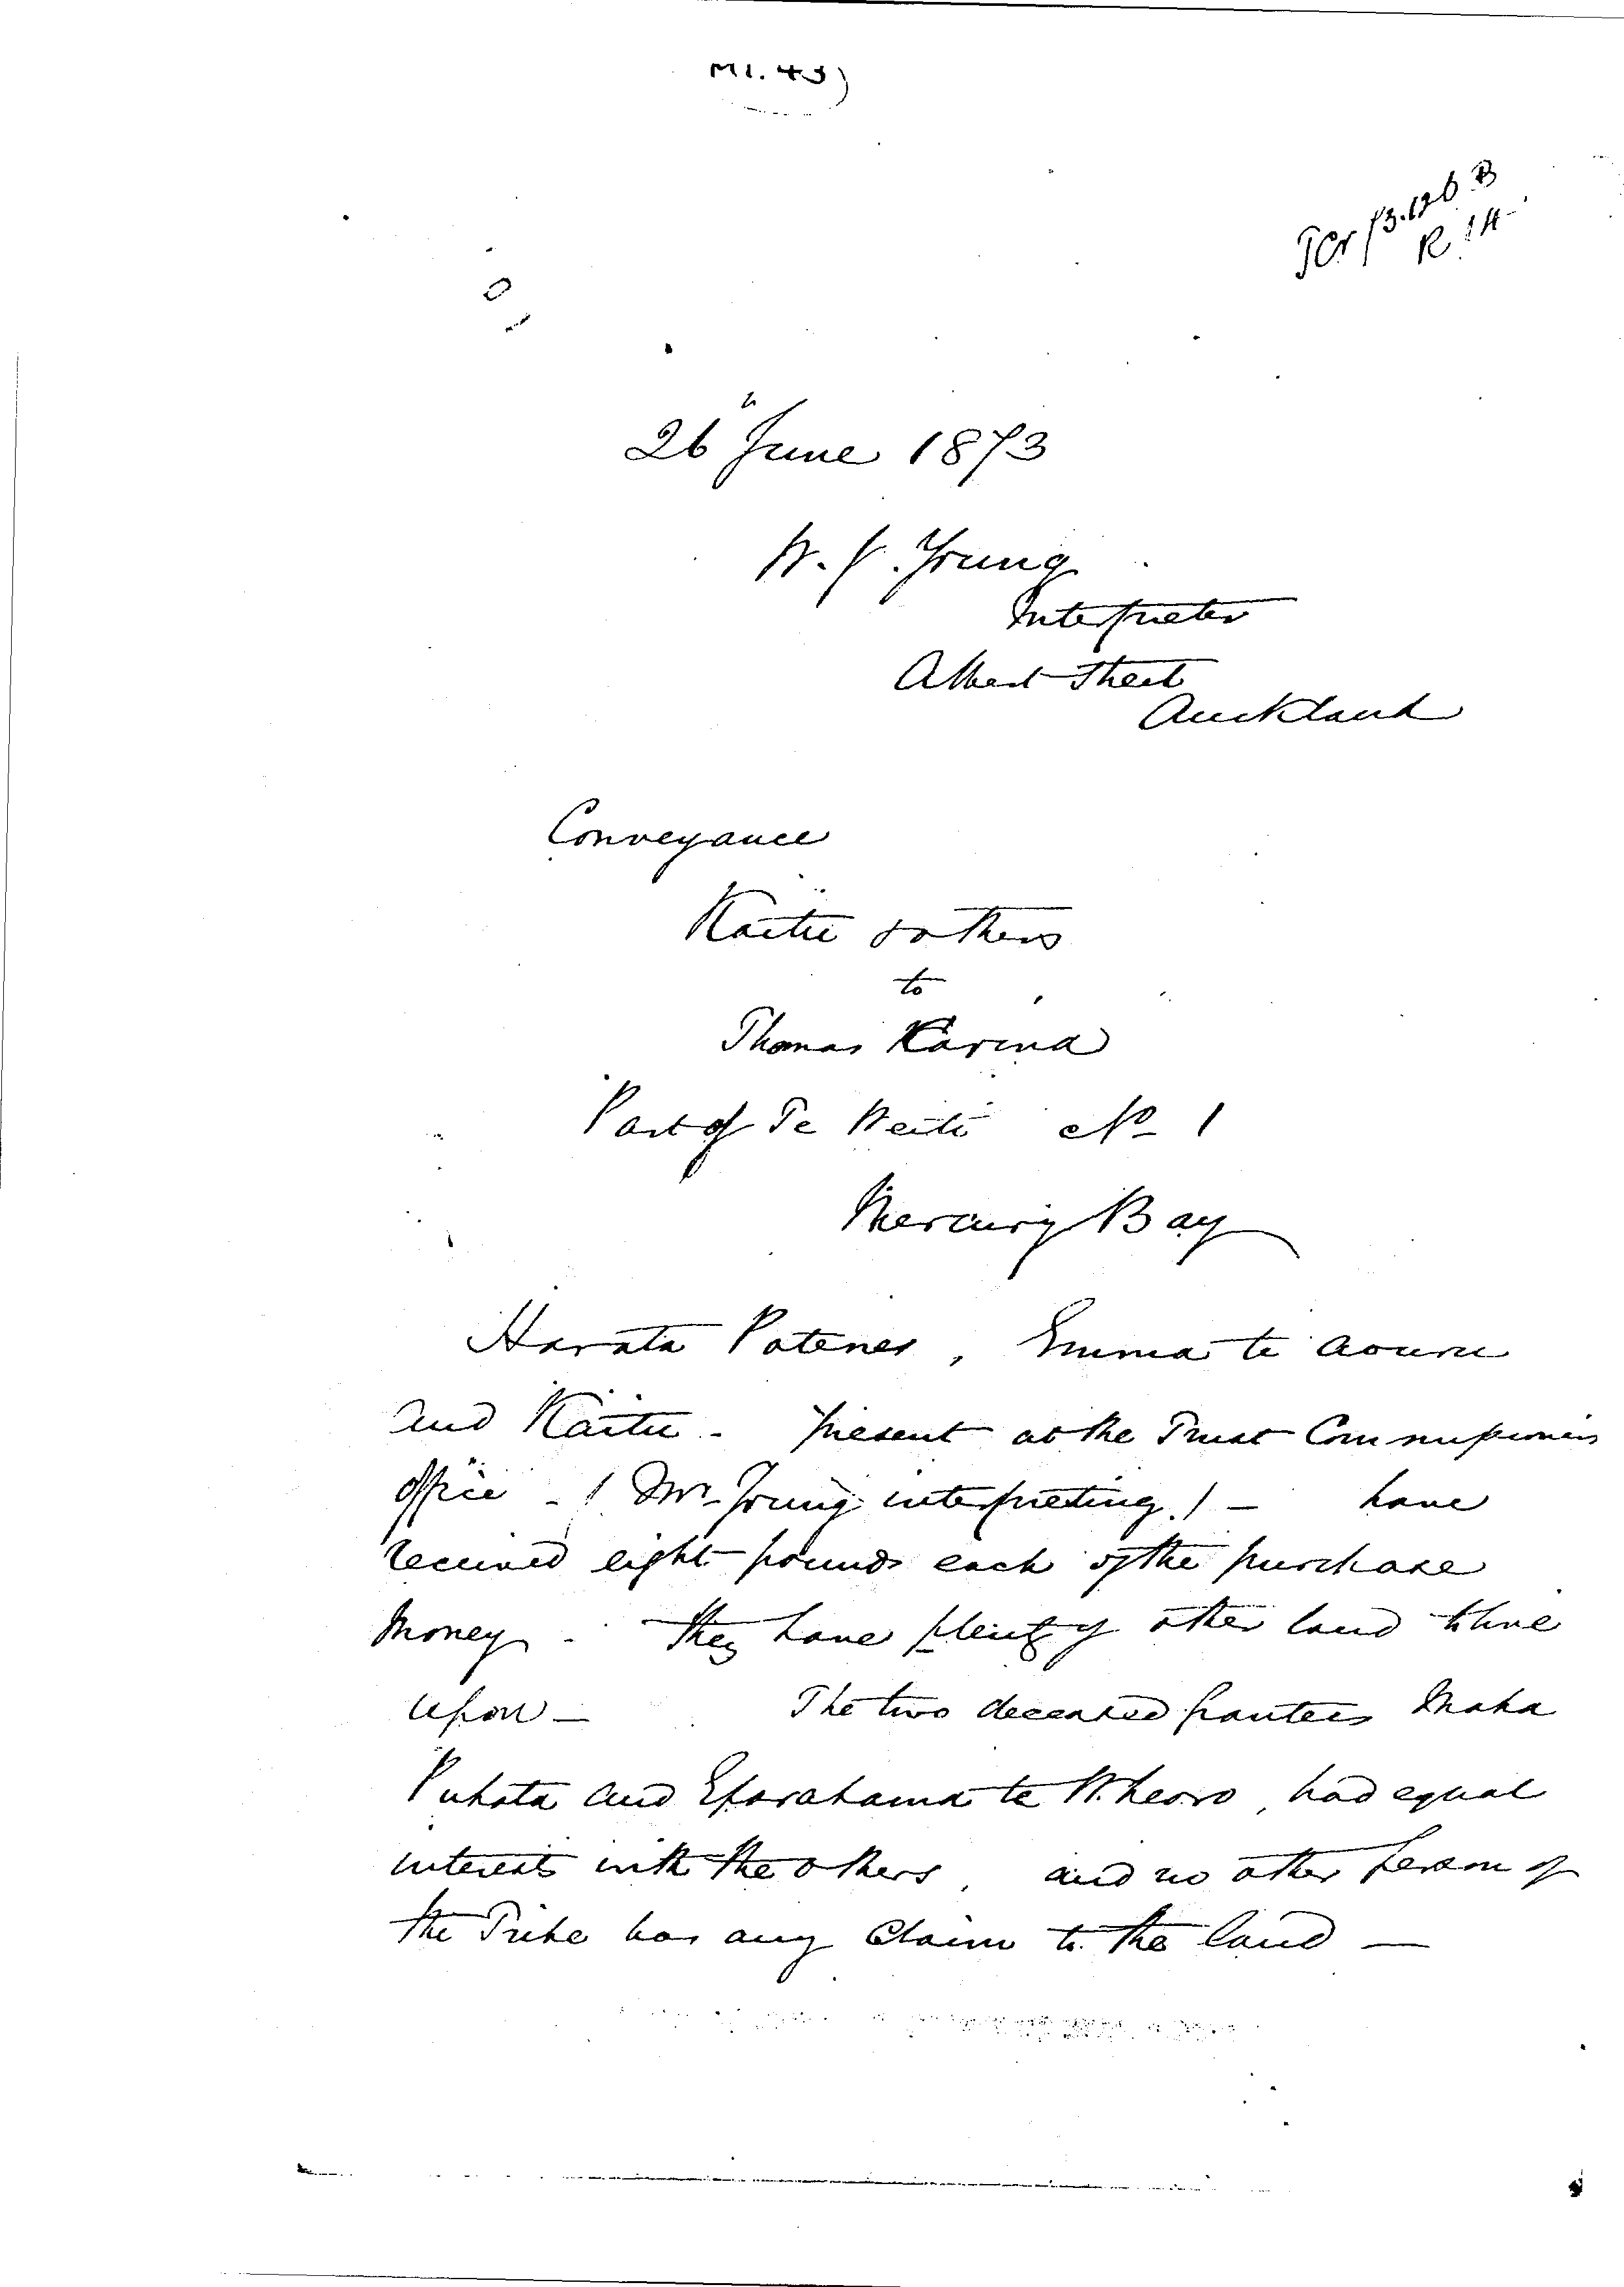 26 June 1873
Young
Interpreter
Albert Street
Auckland
Conveyance
Kaitu & others
to
Thomas Karina
Part of Te Weiti No 1
Mercury Bay
Harata Patene, Emma te
and Kaitu - present at the Trust Commissioners
office - ( Mr Young interpreting ) - have
received eight pounds each of the purchase
money - They have plenty of other land to live
upon - The two deceased grantees Maka
Puhata and Eparahama te Wheoro, had equal
interests with the others, and no other person of
the Tribe has any Claim to the land -